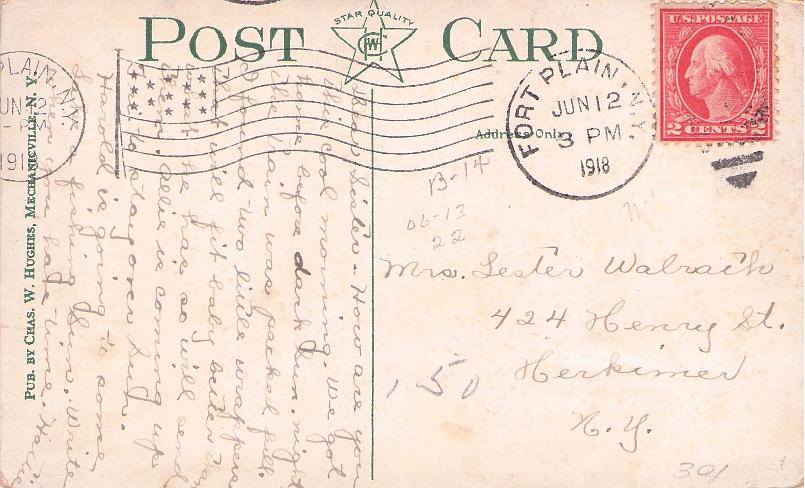 POST CARD
STAR QUALITY
CWH
U.S. POSTAGE
2 CENTS 2
FORT PLAIN, N.Y.
JUN 12
3 PM
1918
PLAIN, N.Y.
JUN 12
- PM
1918
Address Only
PUB. BY CHAS. W. HUGHES, MECHANICVILLE, N. Y.
Dear Sister - How are you
this cool morning. We got
home before dark Sun. night
the train was packed full.
I found two little wrappers
that will fit baby better
what he has so will send
them. is coming up
to stay over Sun.
Harold is going to come
fishing Sun. Write
when you have time. Hattie
B-14
06-13
22
Mrs. Lester Walrath
424 Henry St.
Herkimer
N.Y.
150
301